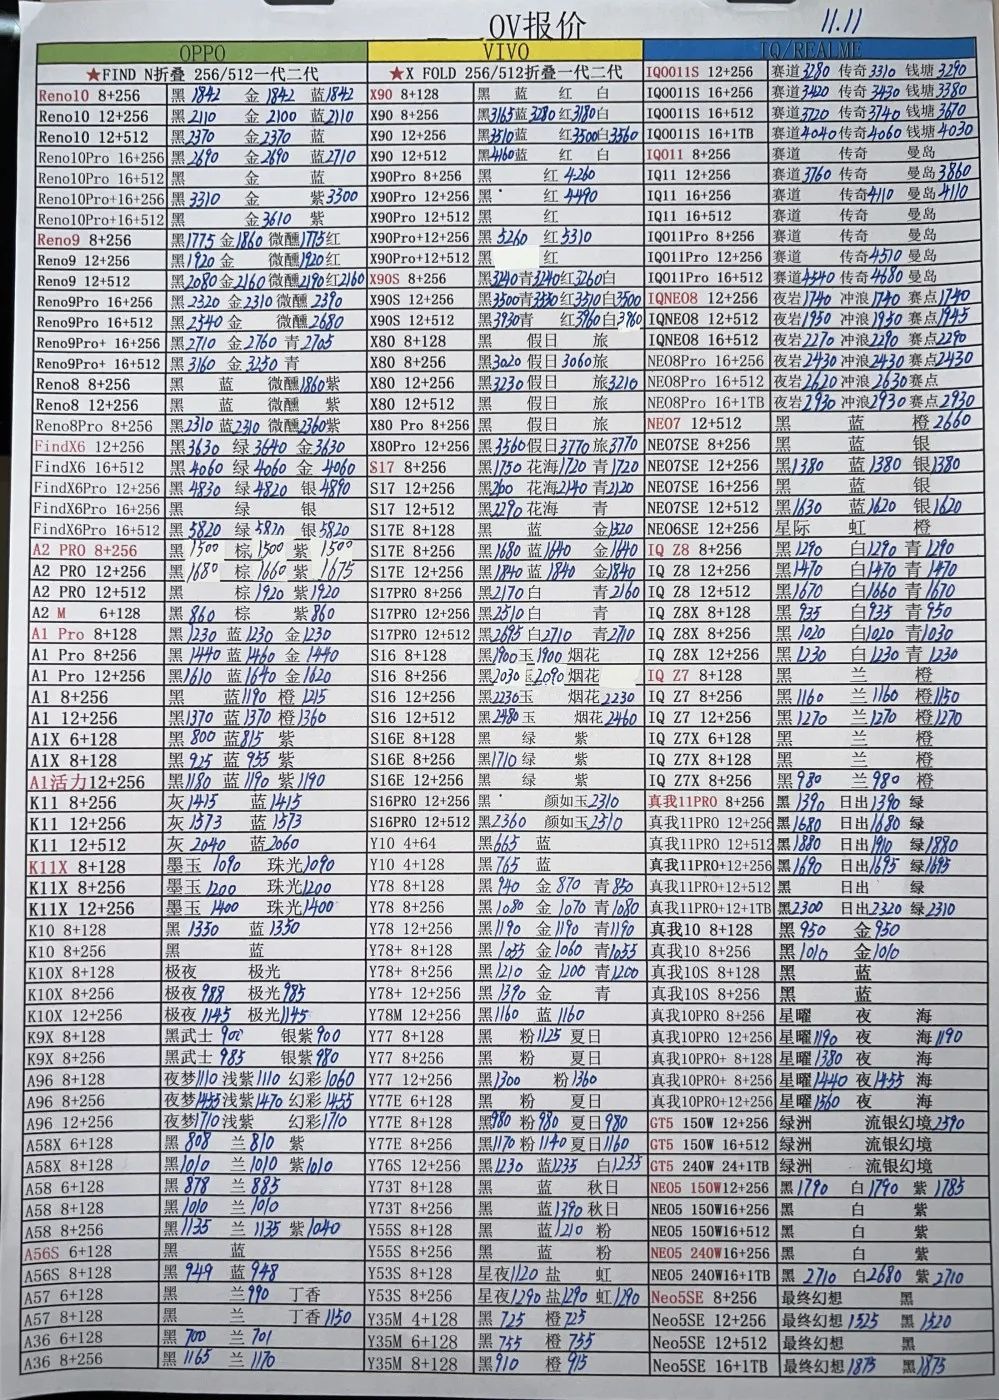 OV报价 11.11
OPPO VIVO IQ/REALME
★FIND N折叠 256/512一代二代 ★X FOLD 256/512折叠一代二代 IQOO11S 12+256 赛道3280 传奇3310 钱塘3290
Reno10 8+256 黑1842 金1842 蓝1842 X90 8+128 黑 蓝 红 白 IQOO11S 16+256 赛道3420 传奇3430 钱塘3380
Reno10 12+256 黑2110 金2100 蓝2110 X90 8+256 黑3165蓝3280红3180白 IQOO11S 16+512 赛道3720 传奇3740 钱塘3670
Reno10 12+512 黑2370 金2370 蓝 X90 12+256 黑3510蓝 红3500白3560 IQOO11S 16+1TB 赛道4040 传奇4060 钱塘4030
Reno10Pro 16+256 黑2690 金2690 蓝2710 X90 12+512 黑4160蓝 红 白 IQO11 8+256 赛道 传奇 曼岛
Reno10Pro 16+512 黑 金 蓝 X90Pro 8+256 黑 红4260 IQ11 12+256 赛道3760 传奇 曼岛3860
Reno10Pro+16+256 黑3310 金 紫3300 X90Pro 12+256 黑 红4490 IQ11 16+256 赛道 传奇4110 曼岛4110
Reno10Pro+16+512 黑 金3610 紫 X90Pro 12+512 黑 红 IQ11 16+512 赛道 传奇 曼岛
Reno9 8+256 黑1775 金1860 微醺1775红 X90Pro+12+256 黑5260 红5310 IQO11Pro 8+256 赛道 传奇 曼岛
Reno9 12+256 黑1920 金 微醺1920红 X90Pro+12+512 黑 红 IQO11Pro 16+256 赛道 传奇4510 曼岛
Reno9 12+512 黑2080金2160 微醺2190红2160 X90S 8+256 黑3240青3240红3260白 IQO11Pro 16+512 赛道4540 传奇4680 曼岛
Reno9Pro 16+256 黑2320 金2310 微醺2390 X90S 12+256 黑3500青3330红3510白3500 IQNEO8 12+256 夜岩1740 冲浪1740 赛点1740
Reno9Pro 16+512 黑2540 金 微醺2680 X90S 12+512 黑3930青 红3960白3960 IQNEO8 12+512 夜岩1950 冲浪1950 赛点1945
Reno9Pro+ 16+256 黑2710 金2760 青2705 X80 8+128 黑 假日 旅 IQNEO8 16+512 夜岩2270 冲浪2290 赛点2290
Reno9Pro+ 16+512 黑3160 金3250 青 X80 8+256 黑3020 假日3060旅 NEO8Pro 16+256 夜岩2430 冲浪2430 赛点2430
Reno8 8+256 黑 蓝 微醺1860紫 X80 12+256 黑3230假日 旅3210 NEO8Pro 16+512 夜岩2620 冲浪2630赛点
Reno8 12+256 黑 蓝 微醺 紫 X80 12+512 黑 假日 旅 NEO8Pro 16+1TB 夜岩2930 冲浪2930 赛点2930
Reno8Pro 8+256 黑2310 蓝2310 微醺2360紫 X80 Pro 8+256 黑 假日 旅 NEO7 12+512 黑 蓝 橙2660
FindX6 12+256 黑3630 绿3640 金3630 X80Pro 12+256 黑3560假日3770旅3770 NEO7SE 8+256 黑 蓝 银
FindX6 16+512 黑4060 绿4060 金4060 S17 8+256 黑1750 花海1720 青1720 NEO7SE 12+256 黑1380 蓝1380 银1380
FindX6Pro 12+256 黑4830 绿4820 银4890 S17 12+256 黑 花海2140 青2120 NEO7SE 16+256 黑 蓝 银
FindX6Pro 16+256 黑 绿 银 S17 12+512 黑2290花海 青 NEO7SE 12+512 黑1630 蓝1620 银1620
FindX6Pro 16+512 黑5820 绿5820 银5820 S17E 8+128 黑 蓝 金1320 NEO6SE 12+256 星际 虹 橙
A2 PRO 8+256 黑1500 棕1500 紫1500 S17E 8+256 黑1680 蓝1640 金1640 IQ Z8 8+256 黑1290 白1290 青1290
A2 PRO 12+256 黑1680 棕1660 紫1675 S17E 12+256 黑1840蓝1840 金1840 IQ Z8 12+256 黑1470 白1470 青1470
A2 PRO 12+512 黑 棕1920 紫1920 S17PRO 8+256 黑2170白 青2160 IQ Z8 12+512 黑1670 白1660 青1670
A2 M 6+128 黑860 棕 紫860 S17PRO 12+256 黑2510白 青 IQ Z8X 8+128 黑935 白935 青950
A1 Pro 8+128 黑1230 蓝1230 金1230 S17PRO 12+512 黑2695白2710 青2710 IQ Z8X 8+256 黑1020 白1020 青1030
A1 Pro 8+256 黑1440 蓝1460 金1440 S16 8+128 黑1900玉1900 烟花 IQ Z8X 12+256 黑1230 白1230 青1230
A1 Pro 12+256 黑1610 蓝1640 金1620 S16 8+256 黑2030玉2090 烟花 IQ Z7 8+128 黑 兰 橙
A1 8+256 黑 蓝1190 橙1215 S16 12+256 黑2230玉 烟花2230 IQ Z7 8+256 黑1160 兰1160 橙1150
A1 12+256 黑1370 蓝1370 橙1360 S16 12+512 黑2480玉 烟花2460 IQ Z7 12+256 黑1270 兰1270 橙1270
A1X 6+128 黑800 蓝815 紫 S16E 8+128 黑 绿 紫 IQ Z7X 6+128 黑 兰 橙
A1X 8+128 黑925 蓝955 紫 S16E 8+256 黑1710绿 紫 IQ Z7X 8+128 黑 兰 橙
A1活力12+256 黑1180 蓝1190 紫1190 S16E 12+256 黑 绿 紫 IQ Z7X 8+256 黑980 兰980 橙
K11 8+256 灰1415 蓝1415 S16PRO 12+256 黑 颜如玉2310 真我11PRO 8+256 黑1390 日出1390 绿
K11 12+256 灰1573 蓝1573 S16PRO 12+512 黑2360 颜如玉2510 真我11PRO 12+256 黑1680 日出1680 绿
K11 12+512 灰2040 蓝2060 Y10 4+64 黑665 蓝 真我11PRO 12+512 黑1880 日出1910 绿1880
K11X 8+128 墨玉1090 珠光1090 Y10 4+128 黑765 蓝 真我11PRO+12+256 黑1690 日出1695 绿1695
K11X 8+256 墨玉1200 珠光1200 Y78 8+128 黑940 金870 青850 真我11PRO+12+512 黑 日出 绿
K11X 12+256 墨玉1400 珠光1400 Y78 8+256 黑1080 金1070 青1080 真我11PRO+12+1TB 黑2300 日出2320 绿2310
K10 8+128 黑1350 蓝1350 Y78 12+256 黑1190 金1190 青1190 真我10 8+128 黑950 金950
K10 8+256 黑 蓝 Y78+ 8+128 黑1055 金1060 青1055 真我10 8+256 黑1010 金1010
K10X 8+128 极夜 极光 Y78+ 8+256 黑1210 金1200 青1200 真我10S 8+128 黑 蓝
K10X 8+256 极夜988 极光985 Y78+ 12+256 黑1390 金 青 真我10S 8+256 黑 蓝
K10X 12+256 极夜1145 极光1145 Y78M 12+256 黑1160 蓝1160 真我10PRO 8+256 星曜 夜 海
K9X 8+128 黑武士900 银紫900 Y77 8+128 黑 粉1125 夏日 真我10PRO 12+256 星曜1190 夜 海1190
K9X 8+256 黑武士985 银紫980 Y77 8+256 黑 粉 夏日 真我10PRO+ 8+128 星曜1380 夜 海
A96 8+128 夜梦1110浅紫1110 幻彩1060 Y77 12+256 黑1300 粉1360 真我10PRO+ 8+256 星曜1440 夜1455 海
A96 8+256 夜梦1455浅紫1470 幻彩1455 Y77E 6+128 黑 粉 夏日 真我10PRO+12+256 星曜1560 夜 海
A96 12+256 夜梦1710浅紫 幻彩1710 Y77E 8+128 黑980 粉980 夏日980 GT5 150W 12+256 绿洲 流银幻境2390
A58X 6+128 黑808 兰810 紫 Y77E 8+256 黑1170 粉1140 夏日1160 GT5 150W 16+512 绿洲 流银幻境
A58X 8+128 黑1010 兰1010 紫1010 Y76S 12+256 黑1230 蓝1235 白1235 GT5 240W 24+1TB 绿洲 流银幻境
A58 6+128 黑878 兰885 Y73T 8+128 黑 蓝 秋日 NEO5 150W12+256 黑1790 白1790 紫1785
A58 8+128 黑1010 兰1010 Y73T 8+256 黑 蓝1390秋日 NEO5 150W16+256 黑 白 紫
A58 8+256 黑1135 兰1135 紫1040 Y55S 8+128 黑 蓝1210 粉 NEO5 150W16+512 黑 白 紫
A56S 6+128 黑 蓝 Y55S 8+256 黑 蓝 粉 NEO5 240W16+256 黑 白 紫
A56S 8+128 黑949 蓝948 Y53S 8+128 星夜1120 盐 虹 NEO5 240W16+1TB 黑2710 白2680 紫2710
A57 6+128 黑 兰990 丁香 Y53S 8+256 星夜1290盐1290 虹1290 Neo5SE 8+256 最终幻想 黑
A57 8+128 黑 兰 丁香1150 Y35M 4+128 黑725 橙725 Neo5SE 12+256 最终幻想1525 黑1520
A36 6+128 黑700 兰701 Y35M 6+128 黑755 橙755 Neo5SE 12+512 最终幻想 黑
A36 8+256 黑1165 兰1170 Y35M 8+128 黑910 橙915 Neo5SE 16+1TB 最终幻想1875 黑1875